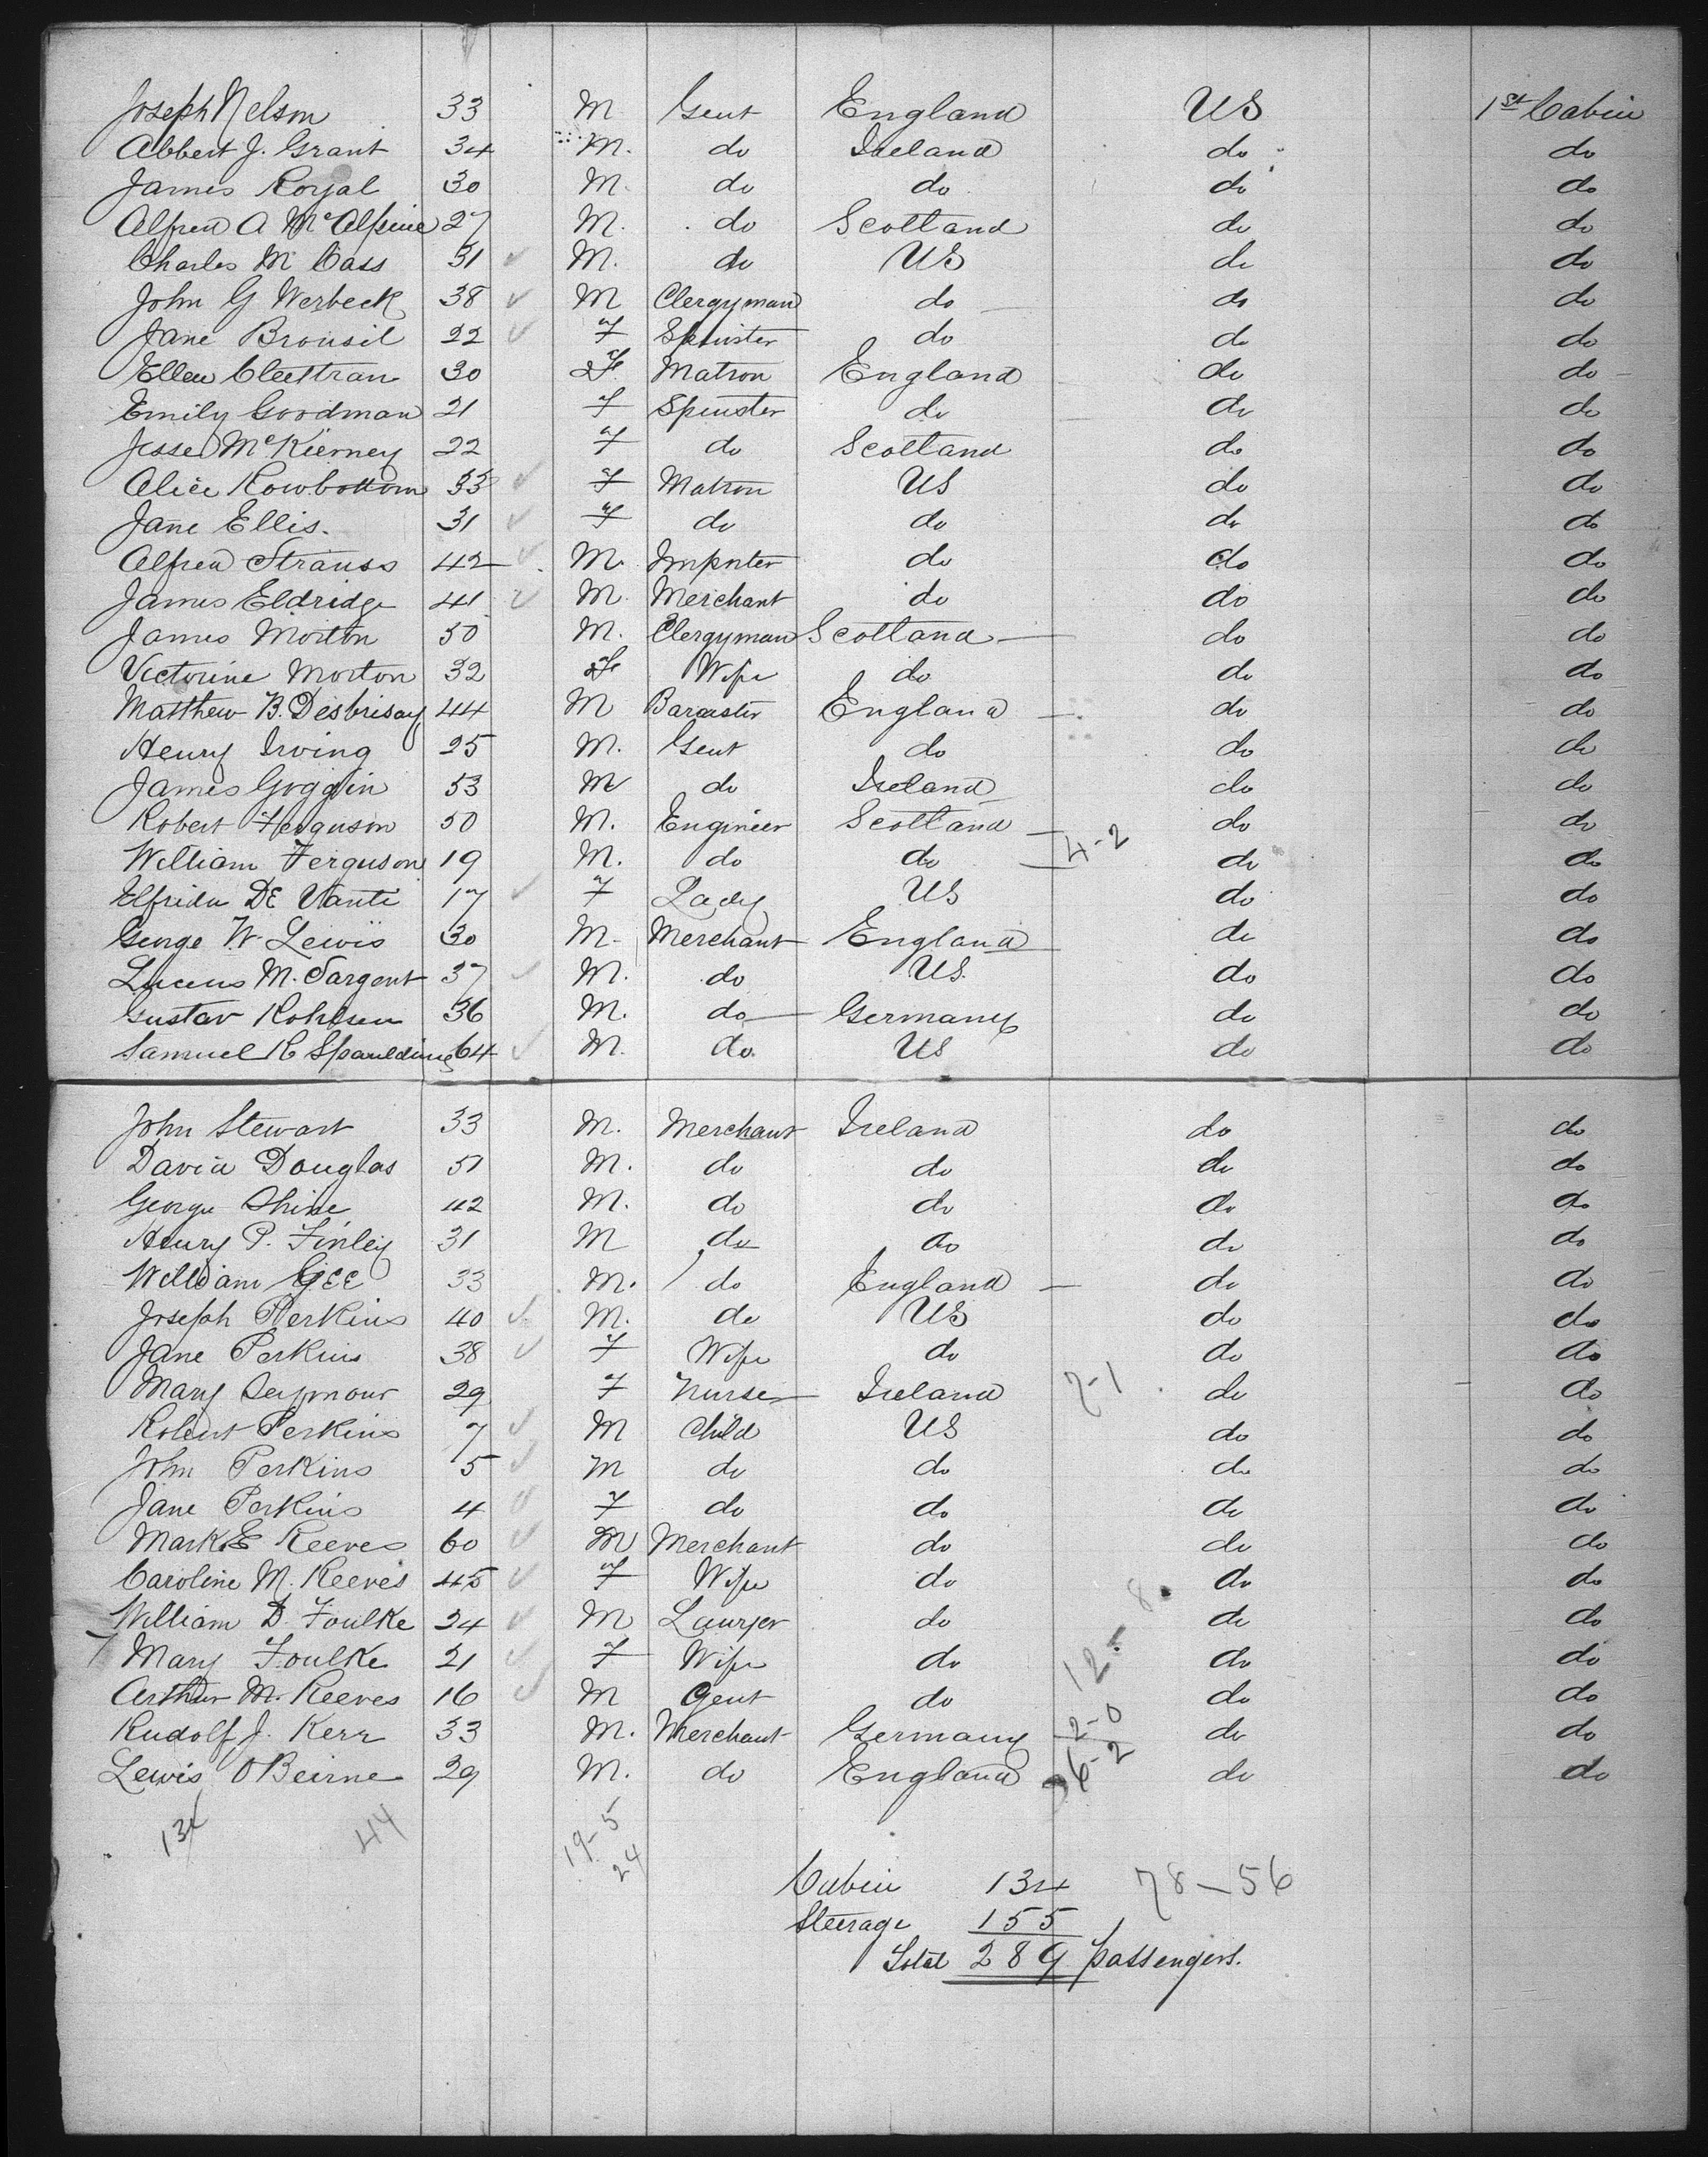 Joseph Nelson 33 M Gent England US 1st Cabin
Abbert J. Grant 34 M. do Ireland do do
James Royal 30 M. do do do do
Alfred A McAlpine 27 M. do Scotland do do
Charles M Cass 31 ✓ M. do US do do
John G Werbeck 38 ✓ M Clergyman do do do
Jane Brousil 22 ✓ F Spinster do do do
Ellen Cleettran 30 F. Matron England do do
Emily Goodman 21 F Spinster do do do
Jessed McKierney 22 F do Scotland do do
Alice Rowbottom 33 ✓ F Matron US do do
Jane Ellis. 31 ✓ F do do do do
Alfred Strauss 42 ✓ M. Importer do do do
James Eldridge 41 ✓ M. Merchant do do do
James Morton 50 M. Clergyman Scotland do do
Victorine Morton 32 F Wife do do do
Matthew B. Desbrisay 44 M Barrister England do do
Henry Irving 25 M. Gent do do do
James Goggin 53 M do Ireland do do
Robert Ferguson 50 M. Engineer Scotland do do
William Ferguson 19 M. do do 4-2 do do
Elfrida DE Vanti 17 ✓ F Lady US do do
George W. Lewis 30 M. Merchant England do do
Lucius M. Sargent 37 ✓ M. do US. do do
Gustav Rohlsen 36 M. do Germany do do
Samuel R Spaulding 64 ✓ M. do. US do do
John Stewart 33 M. Merchant Ireland do do
David Douglas 51 M. do do do do
George Shine 42 M. do do do do
Henry P. Finley 31 M do do do do
William GEE 33 M. do England do do
Joseph Perkins 40 ✓ M. do US do do
Jane Perkins 38 ✓ F Wife do do do
Mary Seymour 29 F Nurse Ireland 7-1 do do
Robert Perkins 7 ✓ M Child US do do
John Perkins 5 ✓ M do do do do
Jane Perkins 4 ✓ F do do do do
Mark E Reeves 60 ✓ M Merchant do do do
Caroline M. Reeves 45 ✓ F Wife do do do
William D. Foulke 24 ✓ M Lawyer do 12-8 do do
Mary Foulke 21 ✓ F Wife do do do
Arthur M. Reeves 16 ✓ M Gent do do do
Rudolf J. Kerr 33 M. Merchant Germany 2-0 do do
Lewis OBeirne 29 M. do England 6-2 do do
134 44 19-5
24
Cabin 134 78-56
Steerage 155
Total 289 passengers.